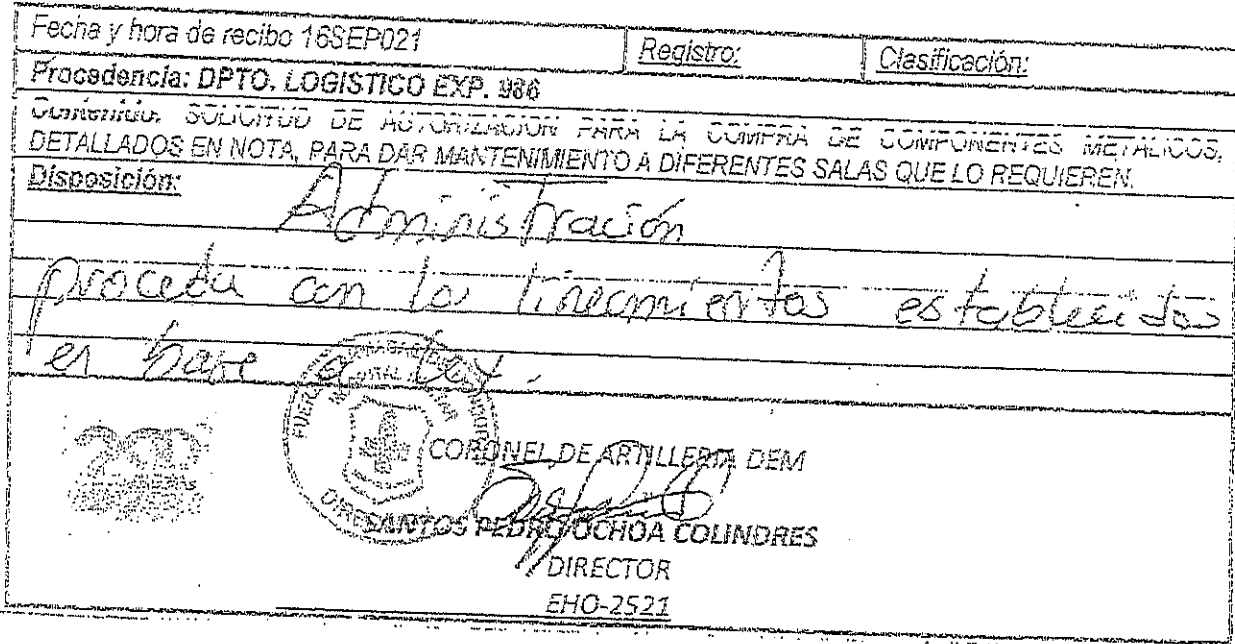 Fecha y hora de recibo 16SEP021 Registro: Clasificación:
Procedencia: DPTO. LOGISTICO EXP. 986
Contenido: SOLICITUD DE AUTORIZACION PARA LA COMPRA DE COMPONENTES METALICOS,
DETALLADOS EN NOTA, PARA DAR MANTENIMIENTO A DIFERENTES SALAS QUE LO REQUIEREN.
Disposición:
Administración
proceda con los lineamientos establecidos
en base a Ley.
200
CORONEL DE ARTILLERIA DEM
SANTOS PEDRO OCHOA COLINDRES
DIRECTOR
EHO-2521